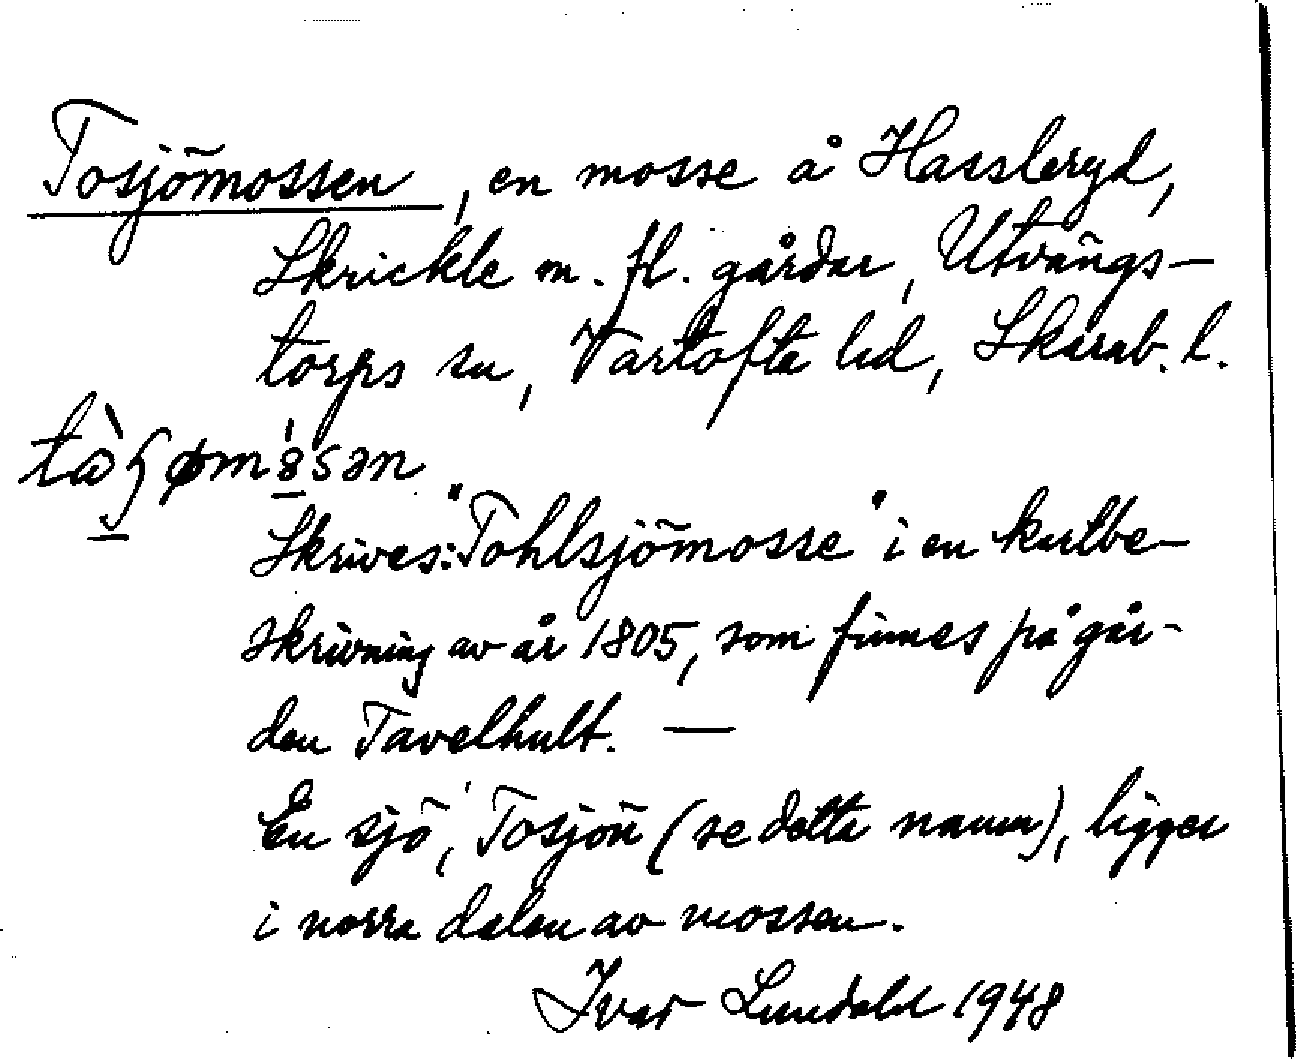 Tosjömossen, en mosse å Hassleryd,
Skrickle m. fl. gårdar, Utvängs-
torps sn, Vartofta hd, Skarab. l.
Skrives: "Tohlsjömosse" i en kulbe-
skrivning av år 1805, som finnes på går-
den Tavelhult. —
En sjö, Tosjön (se detta namn), ligger
i norra delen av mossen.
Ivar Lundahl 1948